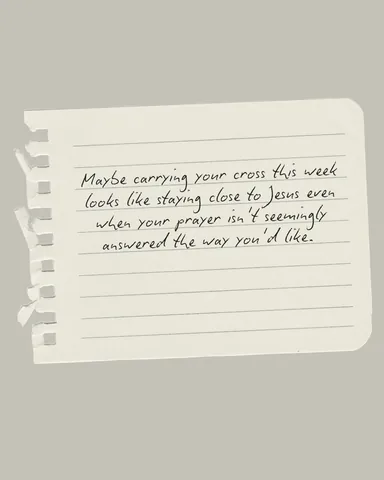 Maybe carrying your cross this week
looks like staying close to Jesus even
when your prayer isn't seemingly
answered the way you'd like.